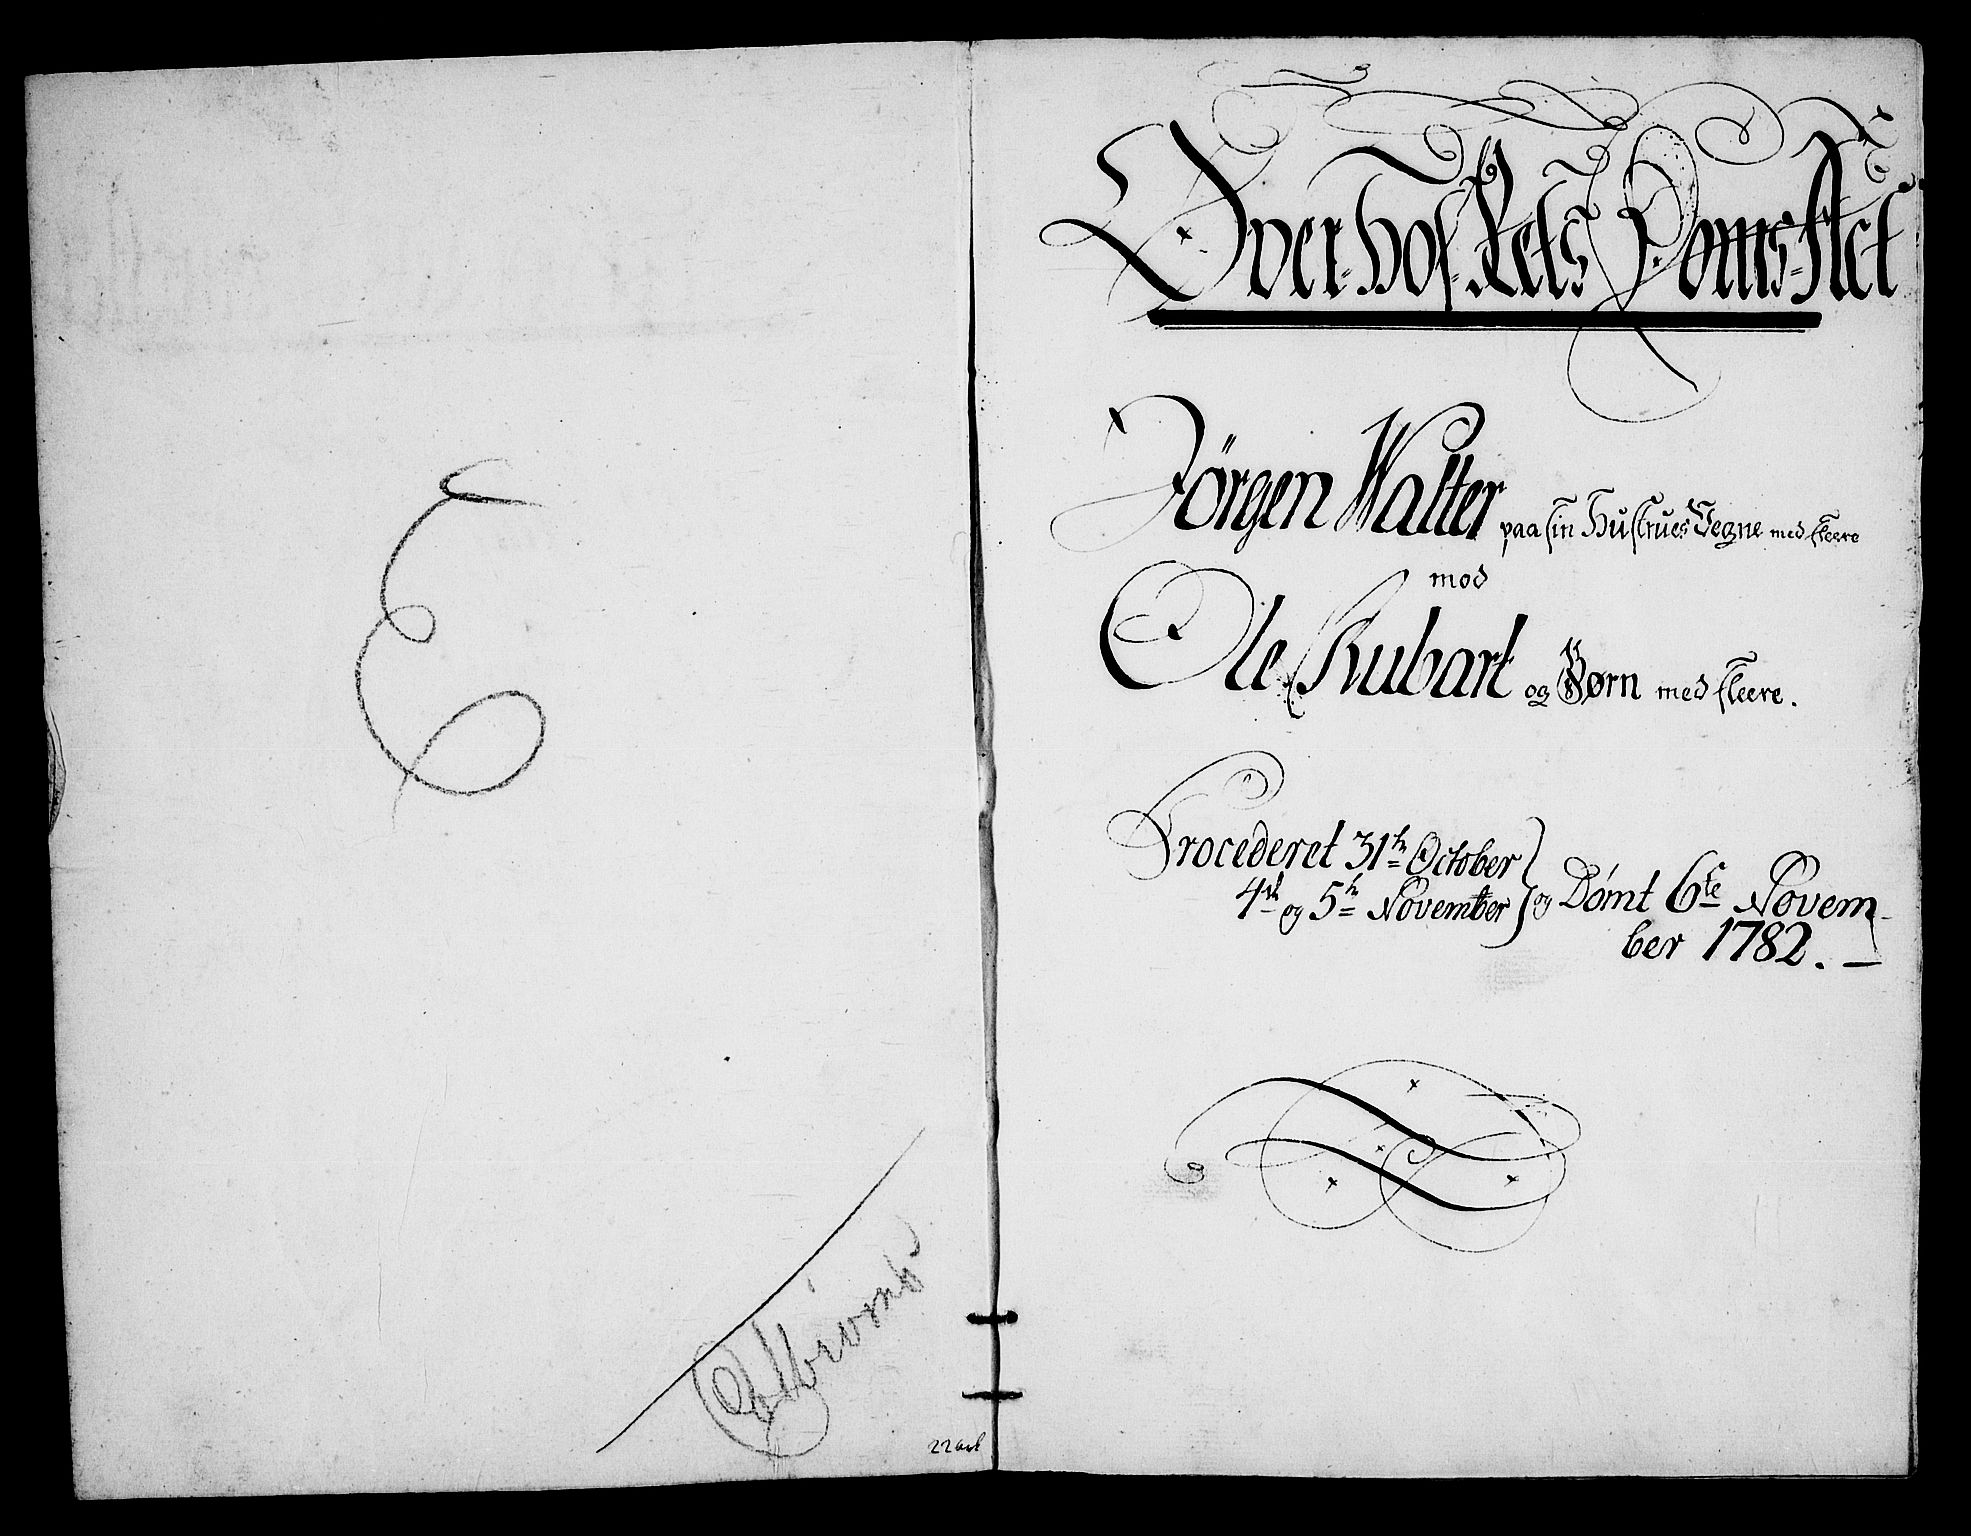 Over-Hof-Rets Doms-Act
Jörgen Walter paa sin Hustrues Vegne med fleere
mod
Ole Rubart og Børn med fleere.
Procederet 31te October
4de og 5te November og Dømt 6te Novem-
ber 1782.